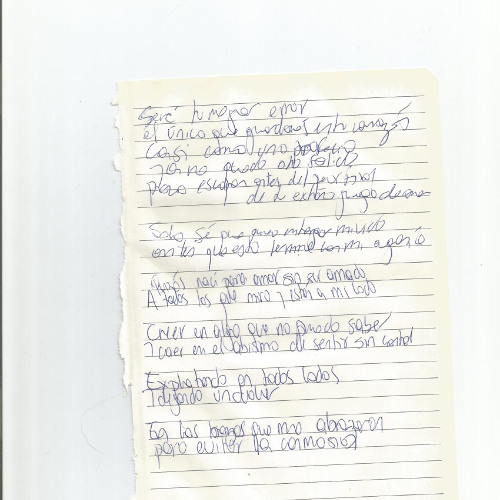 Seré tu mayor error
el único que guardarás en tu corazón
Casi como una
Ya no quedo otra salida
para escapar antes del final
de extraño juego de amor
Solo sé que quiero entregar mi
antes que esto termine con mi agonía
Quizás nací para amar sin ser amado
A todos los que miro y están a mi lado
Creer en algo que no puedo saber
Y caer en el abismo de sentir sin control
Explotando en todos lados
Y dejando un dolor
En las que me abrazaran
para evitar la